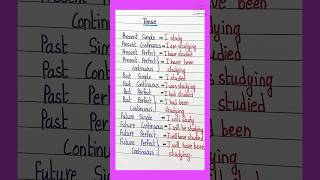 Tense
Present Simple = I study
Present Continuous = I am studying
Present Perfect = I have studied
Present Perfect = I have been
Continuous studying
Past Simple = I studied
Past Continuous = I was studying
Past Perfect = I had studied
Past Perfect = I had been
Continuous studying
Future Simple = I will study
Future Continuous = I will be studying
Future Perfect = I will have studied
Future Perfect = I will have been
Continuous studying.